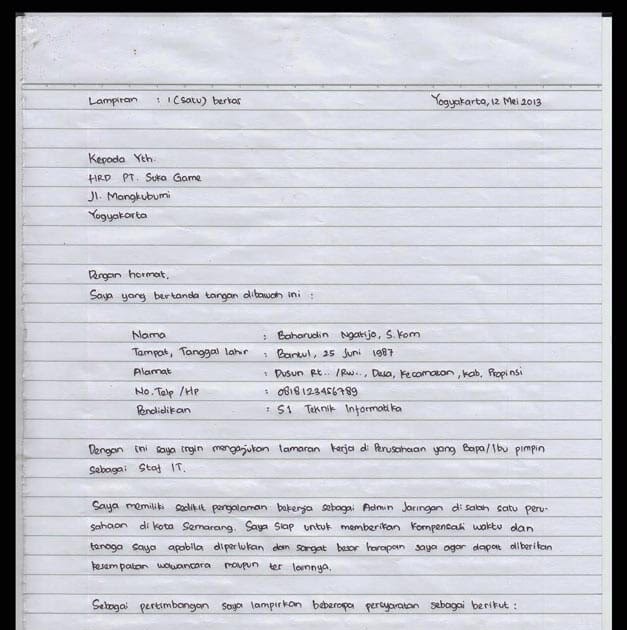 Lampiran : 1 (Satu) berkas Yogyakarta, 12 Mei 2013
Kepada Yth.
HRD PT. Suka Game
Jl. Mangkubumi
Yogyakarta
Dengan hormat,
Saya yang bertanda tangan dibawah ini :
Nama : Baharudin Ngatijo, S.Kom
Tampat, Tanggal lahir : Bantul, 25 Juni 1987
Alamat : Dusun Rt.. /Rw.., Desa, Kecamatan, kab, Propinsi
No. Telp /Hp : 0818123456789
Pendidikan : S1 Teknik Informatika
Dengan ini saya ingin mengajukan lamaran kerja di Perusahaan yang Bapa/Ibu pimpin
sebagai Staf IT.
Saya memiliki sedikit pengalaman bekerja sebagai Admin Jaringan di salah satu peru-
sahaan di kota Semarang. Saya siap untuk memberikan kompensasi waktu dan
tenaga saya apabila diperlukan dan sangat besar harapan saya agar dapat diberikan
kesempatan wawancara maupun tes lainnya.
Sebagai pertimbangan saya lampirkan beberapa persyaratan sebagai berikut :